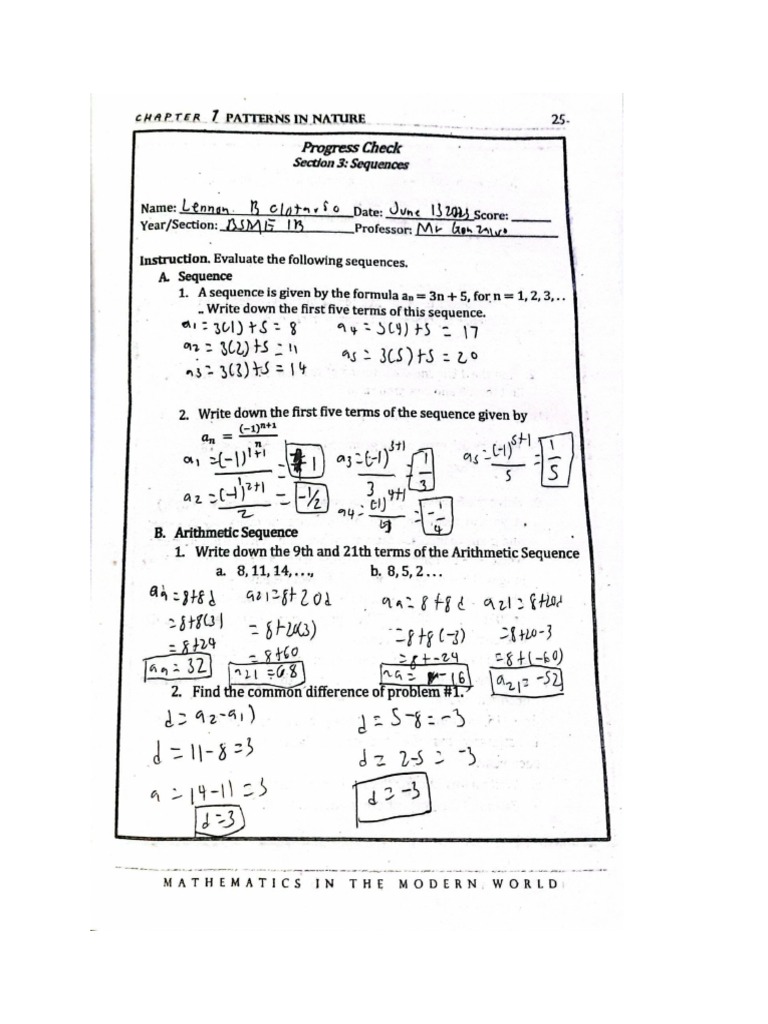 CHAPTER 1 PATTERNS IN NATURE 25-
Progress Check
Section 3: Sequences
Name: Lennon B Date: June 13 2023 Score:
Year/Section: BSME 1B Professor: Mr
Instruction. Evaluate the following sequences.
A. Sequence
1. A sequence is given by the formula aₙ = 3n + 5, for n = 1, 2, 3,. .
.. Write down the first five terms of this sequence.
a1 = 3(1)+5 = 8 a4 = 3(4)+5 = 17
a2 = 3(2)+5 = 11 a5 = 3(5)+5 = 20
a3 = 3(3)+5 = 14
2. Write down the first five terms of the sequence given by
aₙ = (−1)ⁿ⁺¹/n
a1 = (-1)^1+1 = 1 a3 = (-1)^3+1/3 = 1/3 a5 = (-1)^5+1/5 = 1/5
a2 = (-1)^2+1/2 = -1/2 a4 = (-1)^4+1/4 = -1/4
B. Arithmetic Sequence
1. Write down the 9th and 21th terms of the Arithmetic Sequence
a. 8, 11, 14, . . ., b. 8, 5, 2 . . .
a9 = 8+8d a21 = 8+20d a9 = 8+8d a21 = 8+20d
= 8+8(3) = 8+20(3) = 8+8(-3) = 8+20-3
= 8+24 = 8+60 = 8+-24 = 8+(-60)
a9 = 32 a21 = 68 a9 = -16 a21 = -52
2. Find the common difference of problem #1.
d = a2-a1) d = 5-8 = -3
d = 11-8 = 3 d = 2-5 = -3
a = 14-11 = 3 d = -3
d = 3
MATHEMATICS IN THE MODERN WORLD